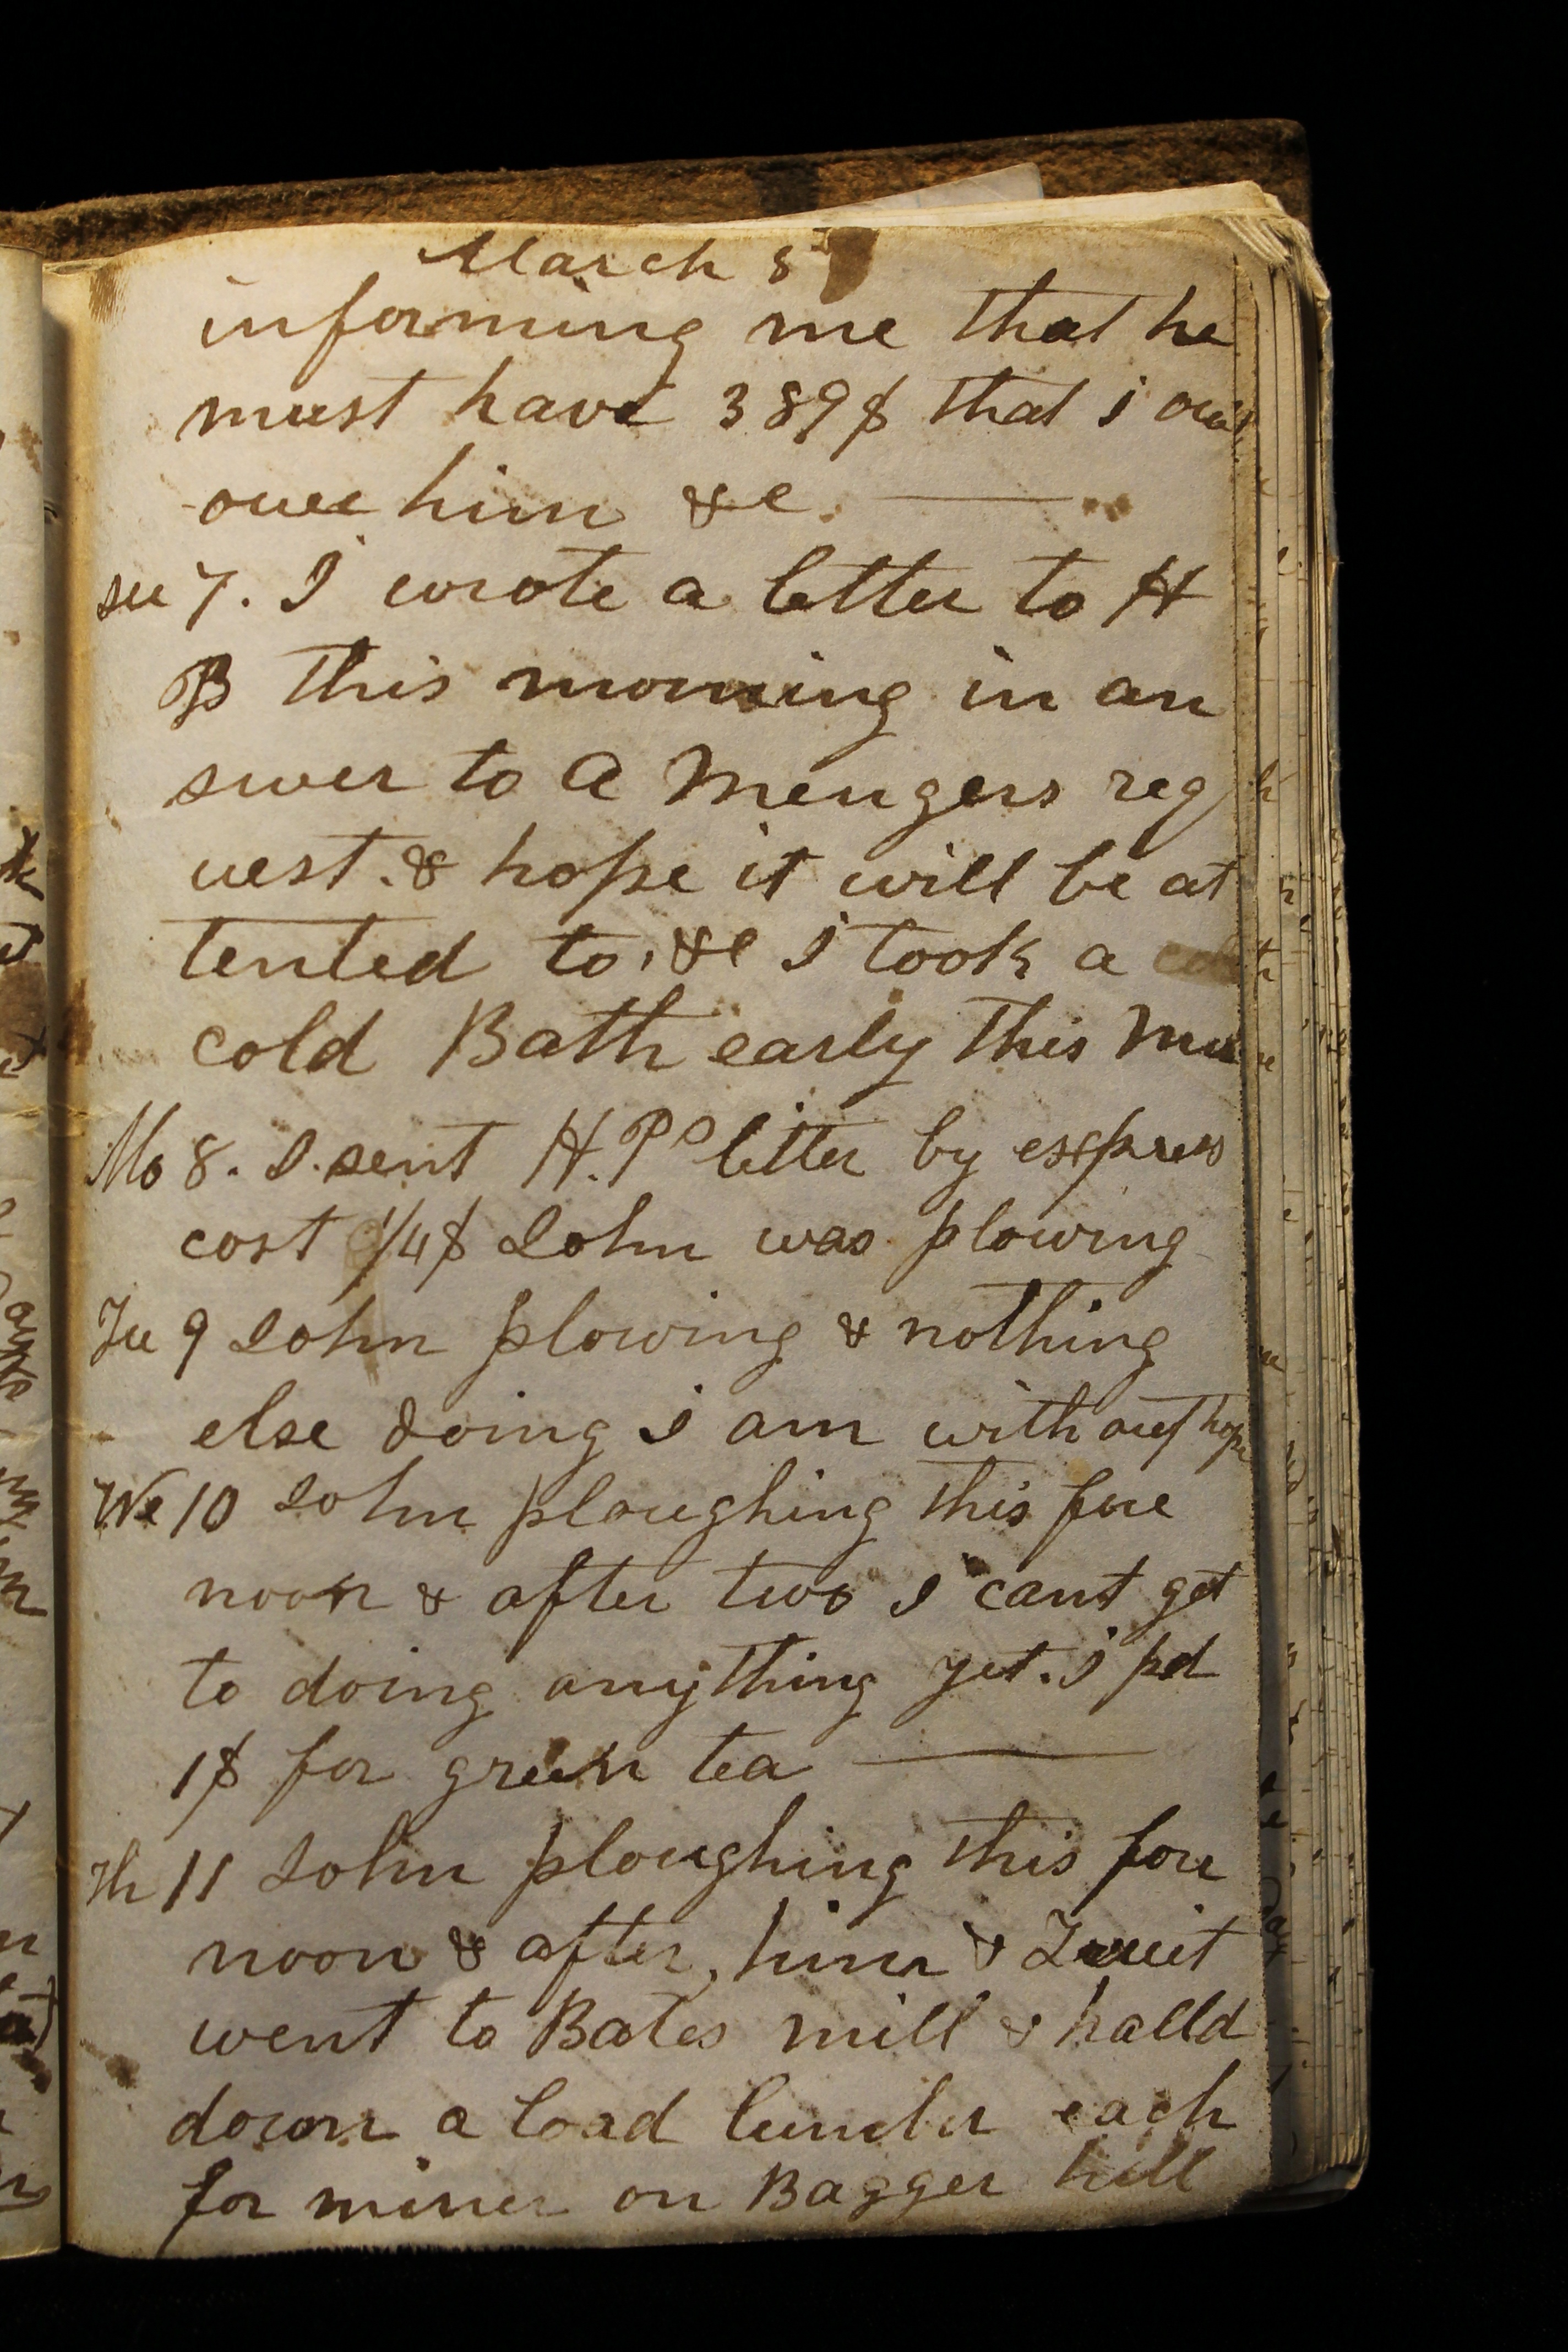 March 5
informing me that he
must have 389$ that i owe
owe him &c.
su 7. I wrote a letter to H
B this morning in an
swer to A Mengers req
uest. & hope it will be at
tented to, &c I took a
cold Bath early this
Mo 8. I sent H. Ps letter by express
cost 1/4$ John was plowing
Tu 9 John plowing & nothing
else doing i am without hope
We 10 John ploughing this fore
noon & after two i cant get
to doing anything yet. i pd
1$ for green tea
Th 11 John ploughing this fore
noon & after, him &
went to Bates mill & halld
down a load lumber each
for miner on Bagger hill